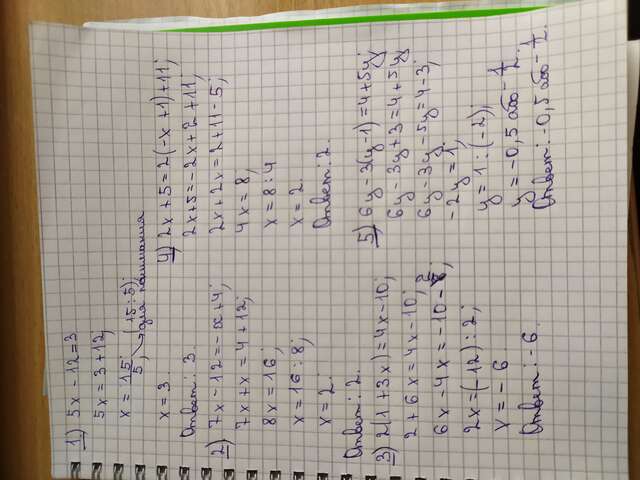 1) 5x - 12 = 3
5x = 3 + 12;
x = 15/5; (15 : 5);
для понимания
x = 3.
Ответ: 3.
2) 7x - 12 = -x + 4;
7x + x = 4 + 12;
8x = 16;
x = 16 : 8;
x = 2.
Ответ: 2.
3) 2(1 + 3x) = 4x - 10;
2 + 6x = 4x - 10;
6x - 4x = -10 - 2;
2x = (12) : 2;
x = -6
Ответ: -6.
4) 2x + 5 = 2(-x + 1) + 11;
2x + 5 = -2x + 2 + 11;
2x + 2x = 2 + 11 - 5;
4x = 8;
x = 8 : 4
x = 2.
Ответ: 2.
5) 6y - 3(y - 1) = 4 + 5y;
6y - 3y + 3 = 4 + 5y
6y - 3y - 5y = 4 - 3;
-2y = 1;
y = 1 : (-2);
y = -0,5 або - 1/2.
Ответ: -0,5 або - 1/2.